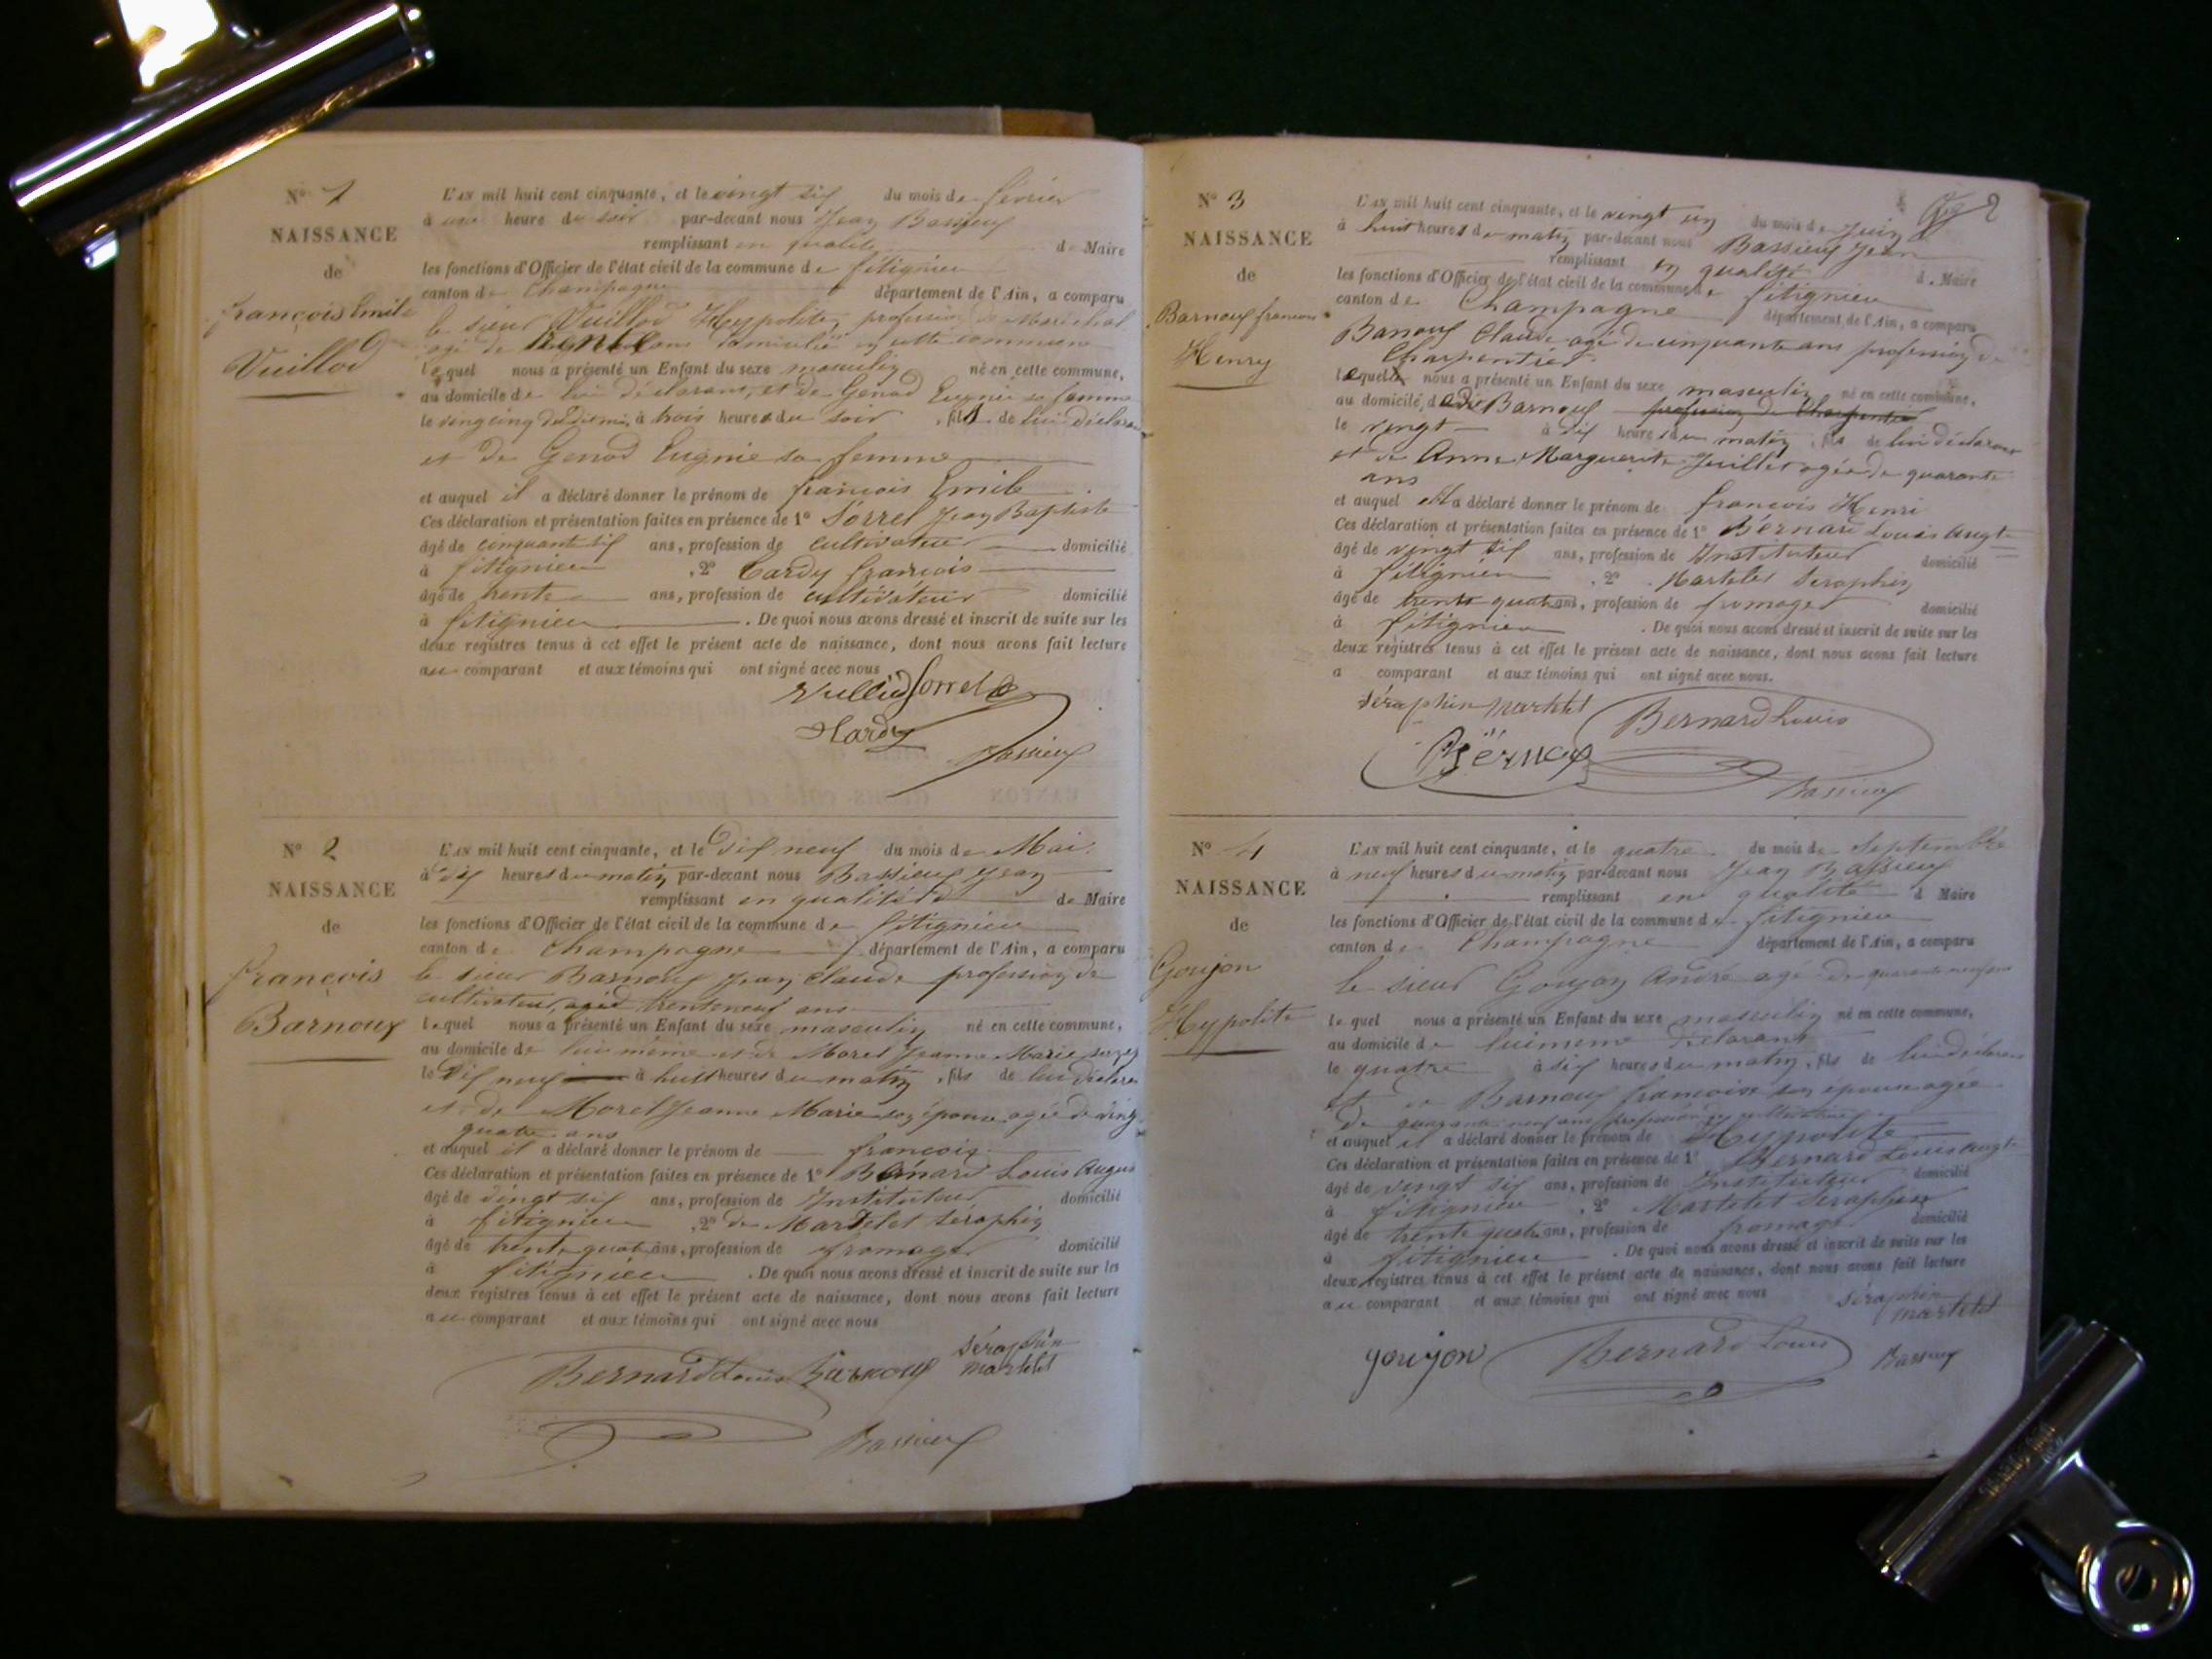 N° 1
NAISSANCE
de
françois Emile
Vuillod
L'AN mil huit cent cinquante, et le vingt six du mois de février
à une heure du soir par-devant nous Jean Bassieux
remplissant en qualité de Maire
les fonctions d'Officier de l'état civil de la commune de fitignieu
canton de Champagne département de l'Ain, a comparu
le sieur Vuillod Hyppolite, profession de Maréchal
agé de ans domicilié en cette commune
lequel nous a présenté un Enfant du sexe masculin né en cette commune,
au domicile de lui déclarant, et de Genod Eugénie sa femme
le à trois heures du soir, fils de lui déclarant
et de Genod Eugnie sa femme
et auquel il a déclaré donner le prénom de francois Emile
Ces déclaration et présentation faites en présence de 1° Sorrel Jean Baptiste
âgé de cinquante six ans, profession de cultivateur domicilié
à fitignieu, 2° Cardy francois
âgé de trente ans, profession de cultivateur domicilié
à fitignieu. De quoi nous avons dressé et inscrit de suite sur les
deux registres tenus à cet effet le présent acte de naissance, dont nous avons fait lecture
au comparant et aux témoins qui ont signé avec nous
Sorrel
Bassieux
N° 2
NAISSANCE
de
françois
Barnoux
L'AN mil huit cent cinquante, et le dix neuf du mois de Mai
à dix heures du matin par-devant nous Bassieux Jean
remplissant en qualité de de Maire
les fonctions d'Officier de l'état civil de la commune de fitignieu
canton de Champagne département de l'Ain, a comparu
le sieur Barnoux Jean Claude profession de
cultivateur, agé d trenteneuf ans
lequel nous a présenté un Enfant du sexe masculin né en cette commune,
au domicile de lui même et de Morel Jeanne Marie
le dix neuf à huit heures du matin, fils de lui déclarant
et de Morel Jeanne Marie son épouse agée de vingt
quatre ans
et auquel il a déclaré donner le prénom de francois
Ces déclaration et présentation faites en présence de 1° Bernard Louis August
âgé de vingt six ans, profession de Instituteur domicilié
à fitignieu, 2° de Martelet Séraphin
âgé de trente quatre ans, profession de fromager domicilié
à fitignieu. De quoi nous avons dressé et inscrit de suite sur les
deux registres tenus à cet effet le présent acte de naissance, dont nous avons fait lecture
au comparant et aux témoins qui ont signé avec nous
séraphin
martelet
Bernard Louis Barnoux
Bassieux
2
N° 3
NAISSANCE
de
Barnoux francois
Henry
L'AN mil huit cent cinquante, et le vingt un du mois de Juin
à huit heures du matin par-devant nous Bassieux Jean
remplissant en qualité de Maire
les fonctions d'Officier de l'état civil de la commune de fitignieu
canton de Champagne département de l'Ain, a comparu
Barnoux Claude agé de cinquante ans profession de
Charpentier
lequel nous a présenté un Enfant du sexe masculin né en cette commune,
au domicile dudit Barnoux profession de Charpentier
le vingt à dix heures du matin, fils de lui déclarant
et de Anne Marguerite Juillet agée de quarante
ans
et auquel il a déclaré donner le prénom de francois Henri
Ces déclaration et présentation faites en présence de 1° Bernard Louis Augte
âgé de vingt six ans, profession de Instituteur domicilié
à fitignieu, 2° Martelet Seraphin
âgé de trente quatre ans, profession de fromager domicilié
à fitignieu. De quoi nous avons dressé et inscrit de suite sur les
deux registres tenus à cet effet le présent acte de naissance, dont nous avons fait lecture
a comparant et aux témoins qui ont signé avec nous.
séraphin martelet Bernard Louis
Bassieux
N° 4
NAISSANCE
de
Goujon
Hyppolite
L'AN mil huit cent cinquante, et le quatre du mois de Septembre
à neuf heures du matin par-devant nous Jean Bassieux
remplissant en qualité d Maire
les fonctions d'Officier de l'état civil de la commune de fitignieu
canton de Champagne département de l'Ain, a comparu
le sieur Goujon André agé de quarante neuf ans
lequel nous a présenté un Enfant du sexe masculin né en cette commune,
au domicile de luimeme déclarant
le quatre à six heures du matin, fils de lui déclarant
et de Barnoux francoise son épouse agée
de quarante neuf ans profession
et auquel il a déclaré donner le prénom de Hyppolite
Ces déclaration et présentation faites en présence de 1° Bernard Louis Augte
âgé de vingt six ans, profession de Instituteur domicilié
à fitignieu, 2° Martelet Seraphin
âgé de trente quatre ans, profession de fromager domicilié
à fitignieu. De quoi nous avons dressé et inscrit de suite sur les
deux registres tenus à cet effet le présent acte de naissance, dont nous avons fait lecture
au comparant et aux témoins qui ont signé avec nous
séraphin
martelet
goujon Bernard Louis Bassieux